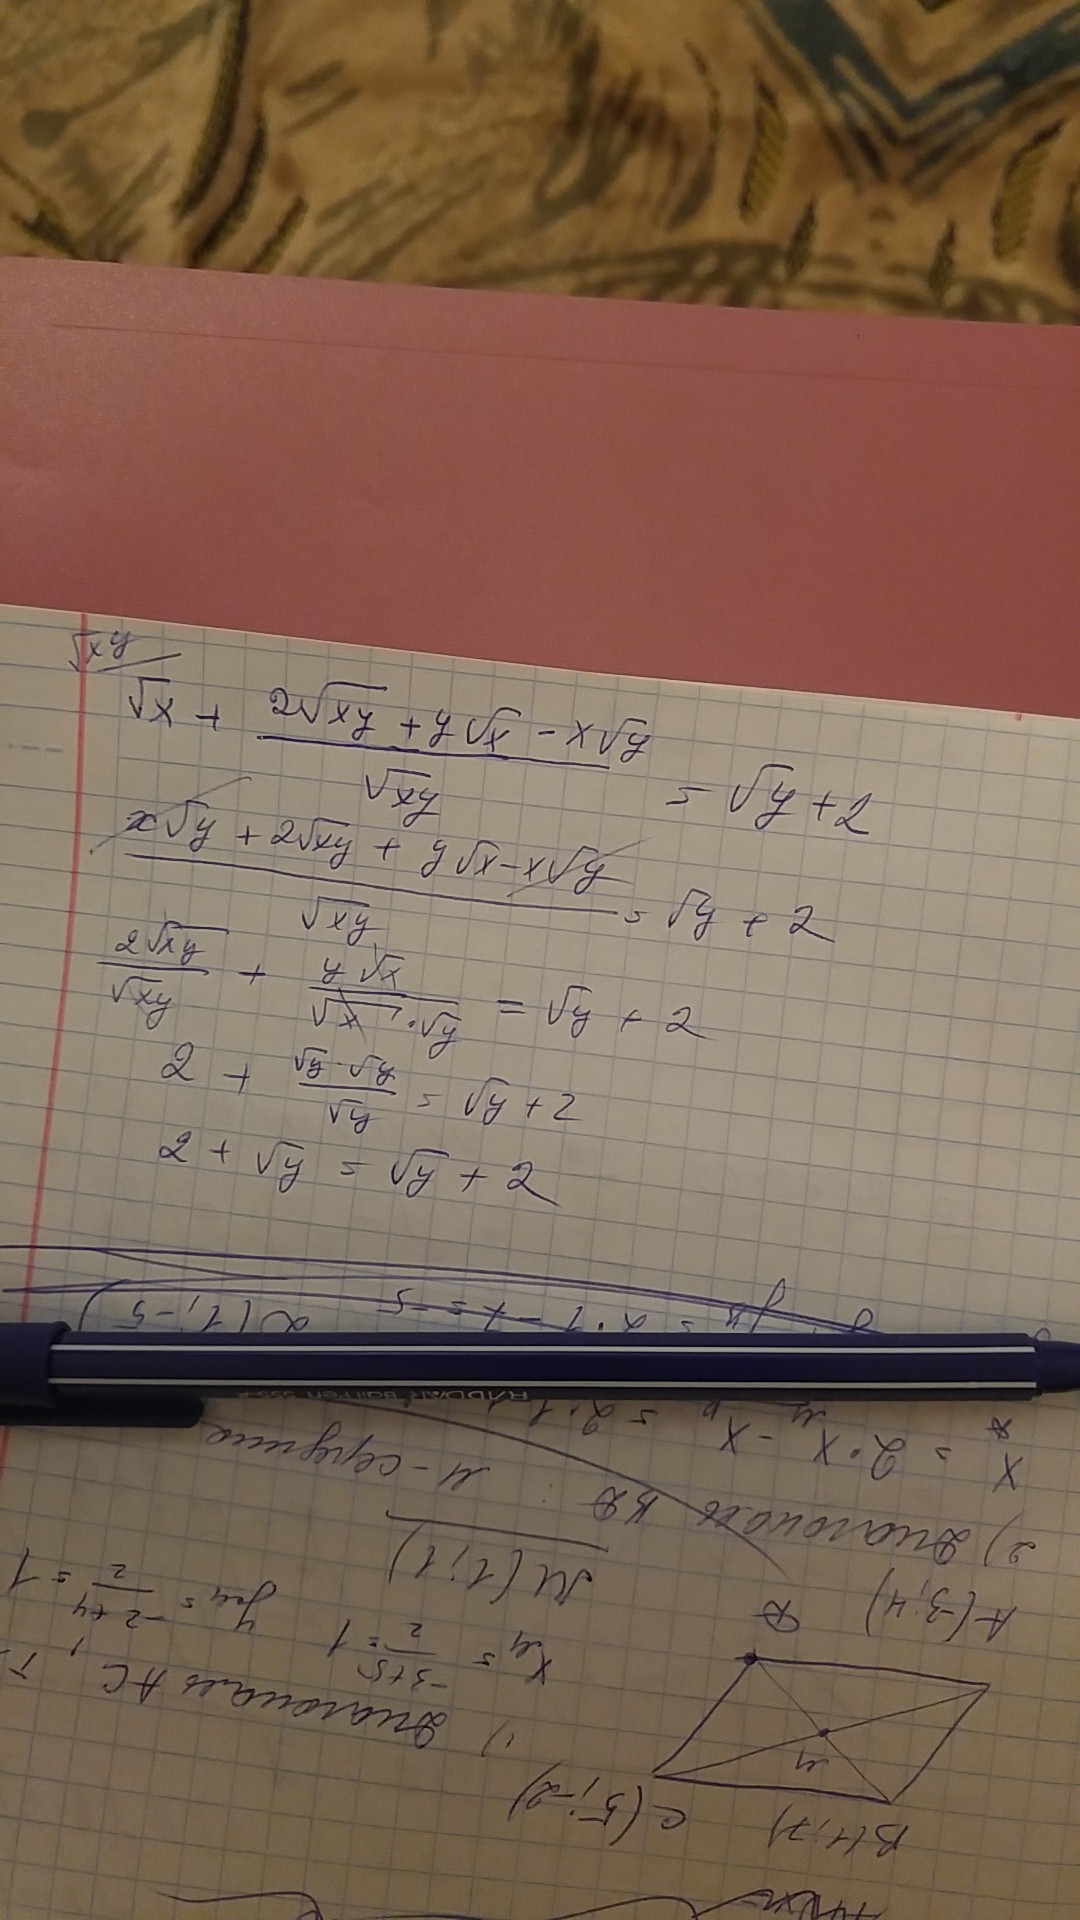 √xy
√x + (2√xy + y√x - x√y)/√xy = √y + 2
(x√y + 2√xy + y√x - x√y)/√xy = √y + 2
2√xy/√xy + y√x/(√x · √y) = √y + 2
2 + (√y · √y)/√y = √y + 2
2 + √y = √y + 2
B(1;7)
C(5;-2)
M
A(-3;4)
D
1) Диагональ AC,
Xм = (-3+5)/2 = 1
Yм = (-2+4)/2 = 1
M(1;1)
2) Диагональ BD : M - середина
X = 2·X - X = 2·1
= 2·1 - 7 = -5 D(1;-5)